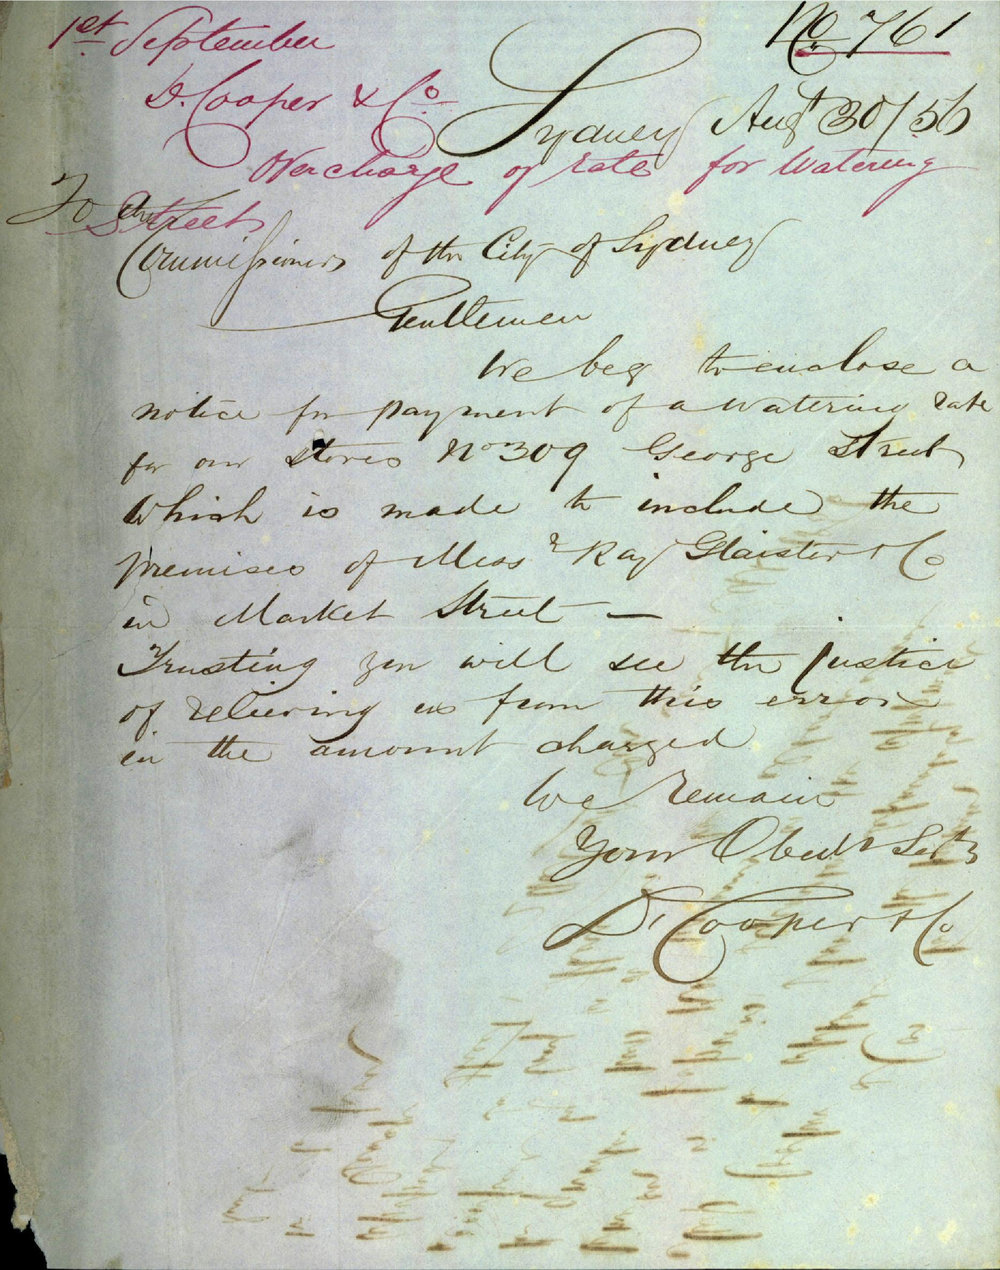 1st September
No 761
D. Cooper & Co
Sydney Augt 30/56
Overcharge of rate for Watering
Streets
To the
Commissioners of the City of Sydney
Gentlemen
We beg to enclose a
notice for payment of a watering rate
for our stores No 309 George Street
which is made to include the
premises of Messrs Ray Glaister & Co
in Market Street —
Trusting you will see the justice
of relieving us from this error
in the amount charged
We remain
Your Obedt Servts
D. Cooper & Co